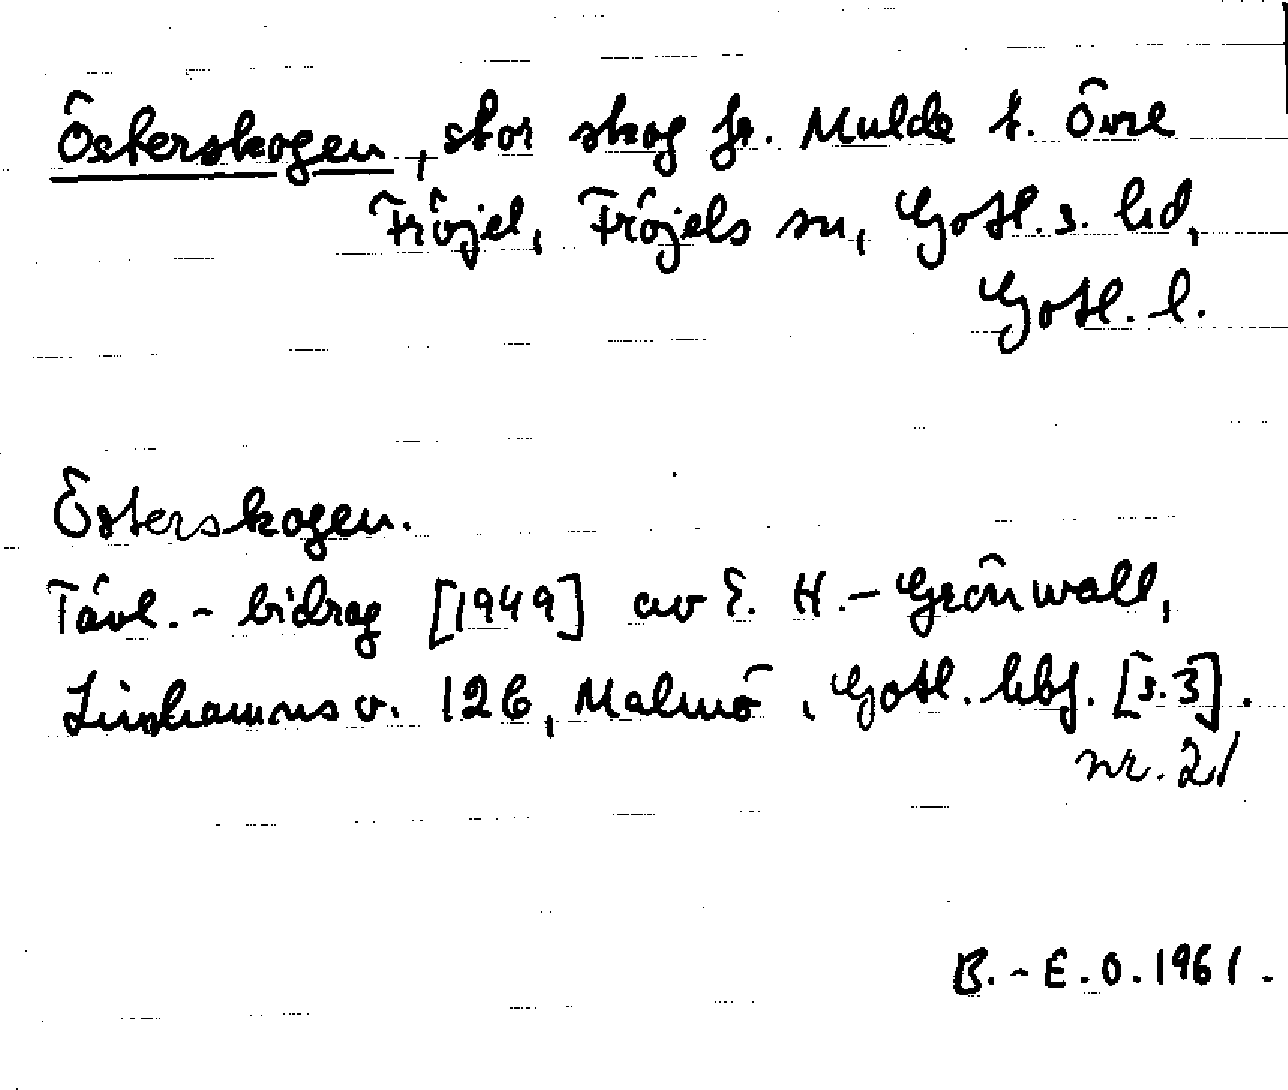 Österskogen, stor skog fr. Mulde t. Övre
Fröjel, Fröjels sn, Gotl. s. hd,
Gotl. l.
Österskogen.
Tävl.-bidrag [1949] av E. H.-Grönwall,
Limhamns v. 126, Malmö, Gotl. hbf. [s. 3].
nr. 21
B.-E.O. 1961.